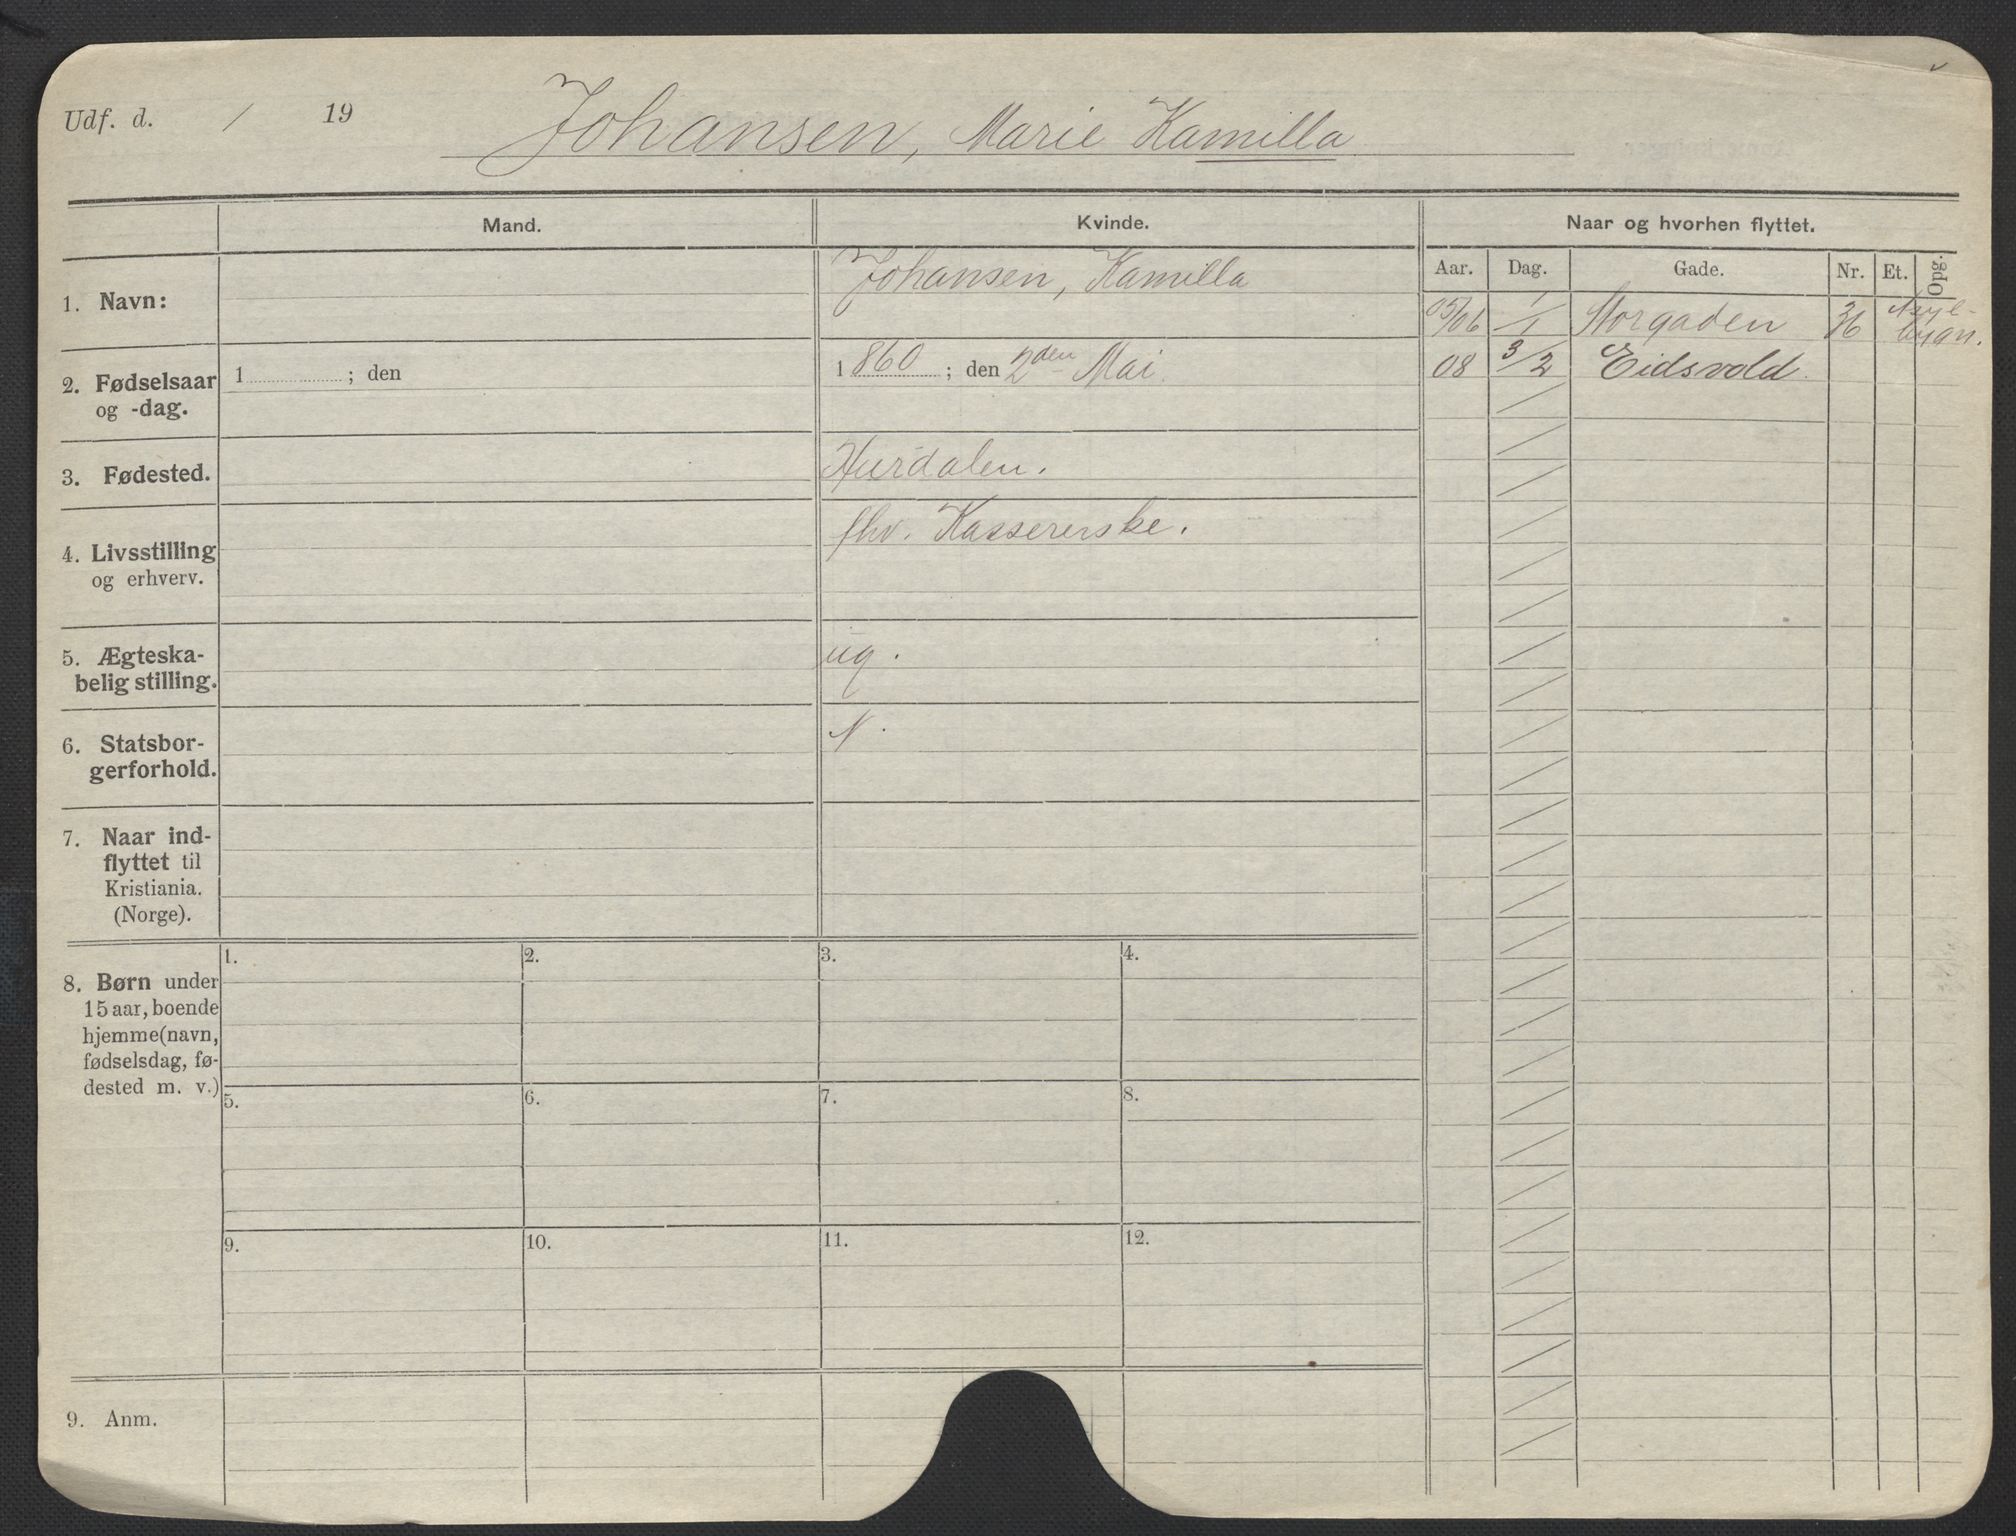 Udf. d. / 19
Johansen, Marie Kamilla
Mand. Kvinde. Naar og hvorhen flyttet.
Aar. Dag. Gade. Nr. Et. Opg.
1. Navn: Johansen, Kamilla
05/06 1/1 Storgaden 36
08 3/2 Eidsvold.
2. Fødselsaar og -dag.
1 ; den
1860 ; den 2den Mai.
3. Fødested. Hurdalen.
4. Livsstilling og erhverv. fhv. Kassererske.
5. Ægteska-
belig stilling. ug.
6. Statsbor-
gerforhold. N.
7. Naar ind-
flyttet til
Kristiania.
(Norge).
8. Børn under
15 aar, boende
hjemme (navn,
fødselsdag, fø-
dested m. v.)
1. 2. 3. 4.
5. 6. 7. 8.
9. 10. 11. 12.
9. Anm.